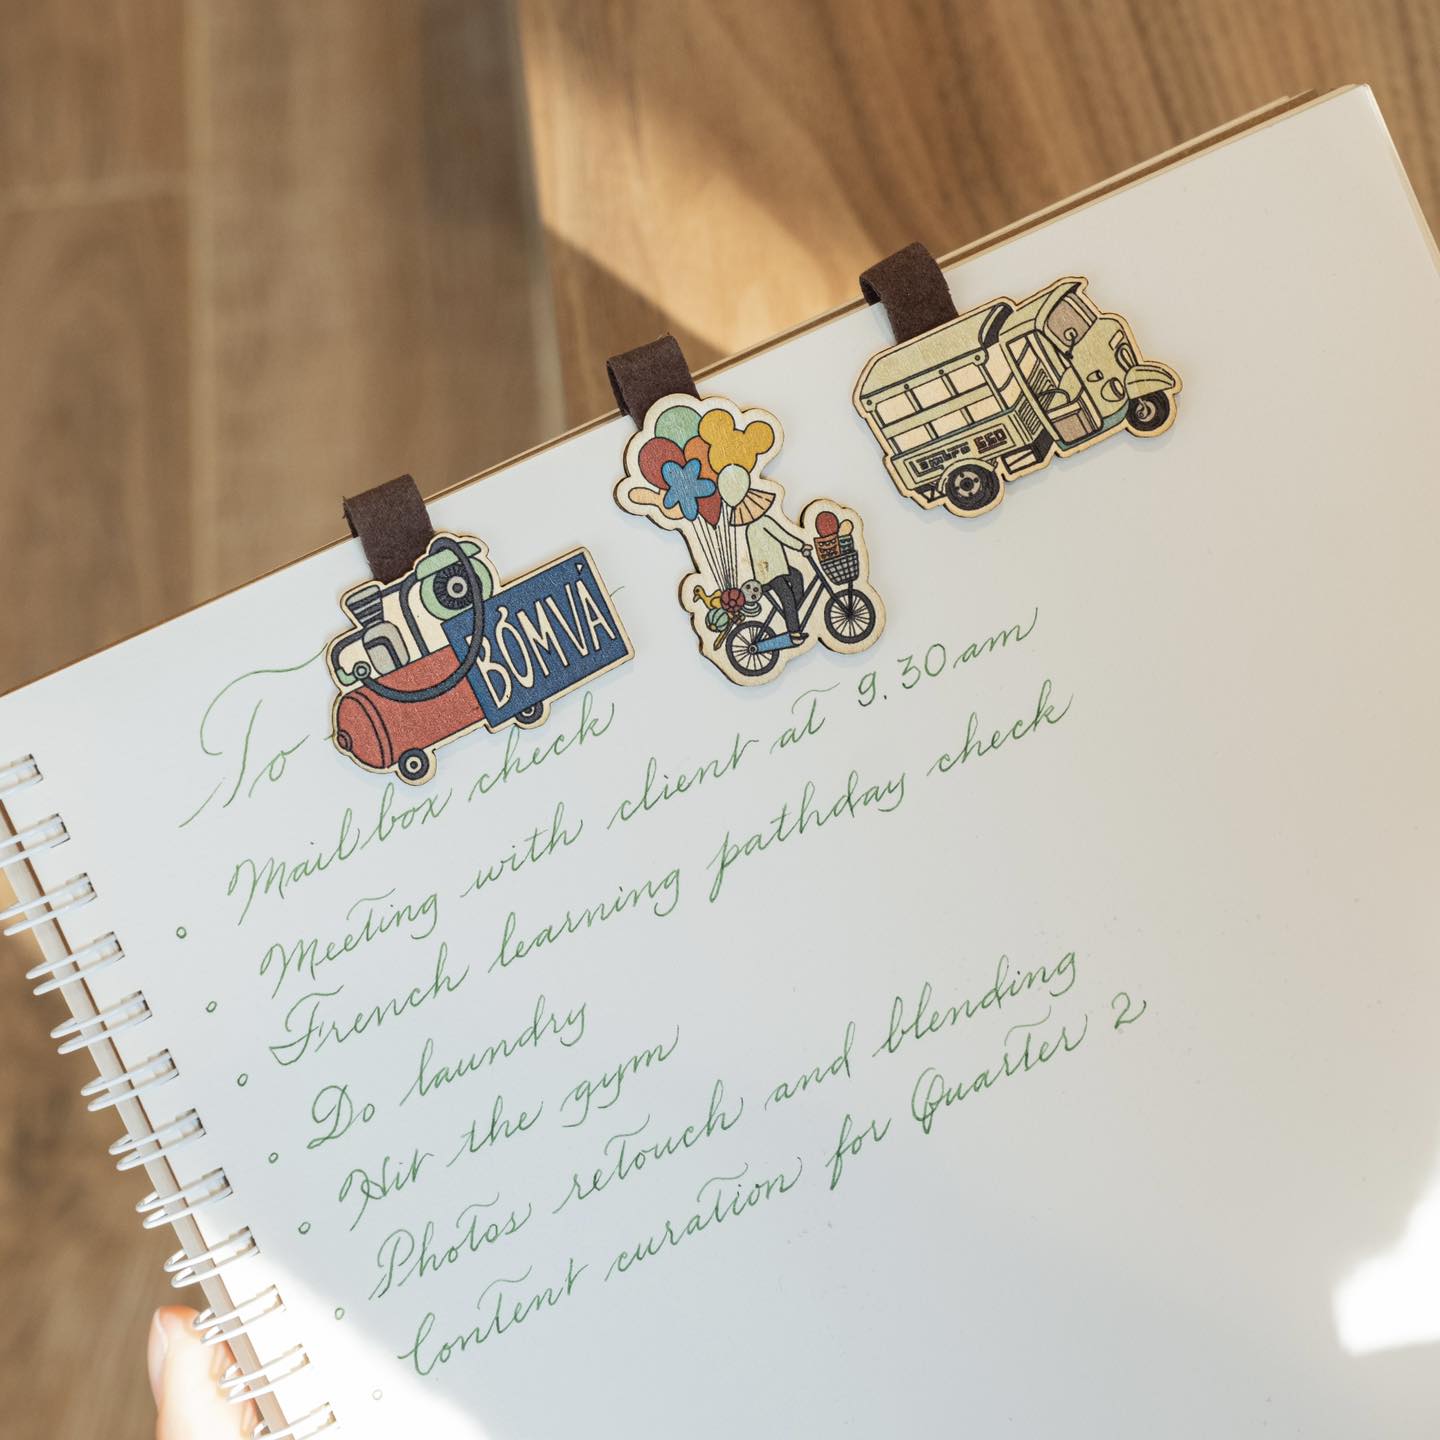 BƠM VÁ
Lambro 550
To
Mail box check
Meeting with client at 9.30 am
French learning pathday check
Do laundry
Hit the gym
Photos retouch and blending
Content curation for Quarter 2